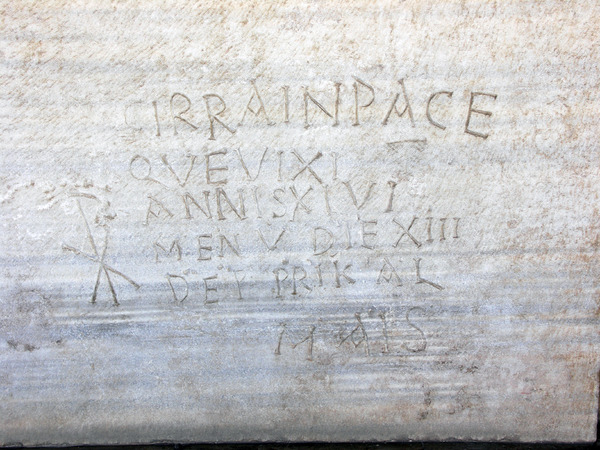 CIRRA IN PACE
QVE VIXI
ANNIS XIVI
MEN V DIE XIII
DET PRI KAL
MAIS